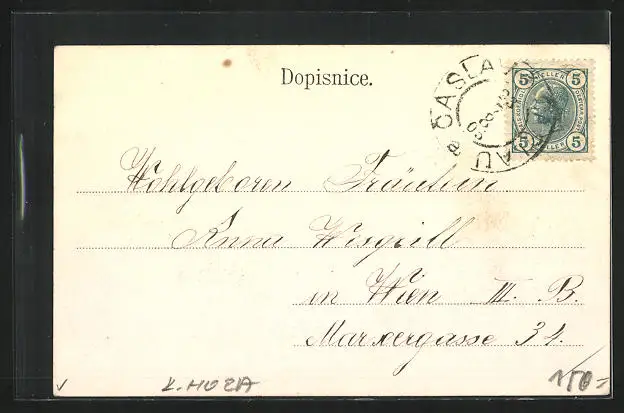 Dopisnice.
ČASLAU
5 HELLER 5
5 HELLER 5
Wohlgeboren Fräulein
Anna Wesgrill
in Wien III. B.
Marxergasse 34.
K. HOZA
150=